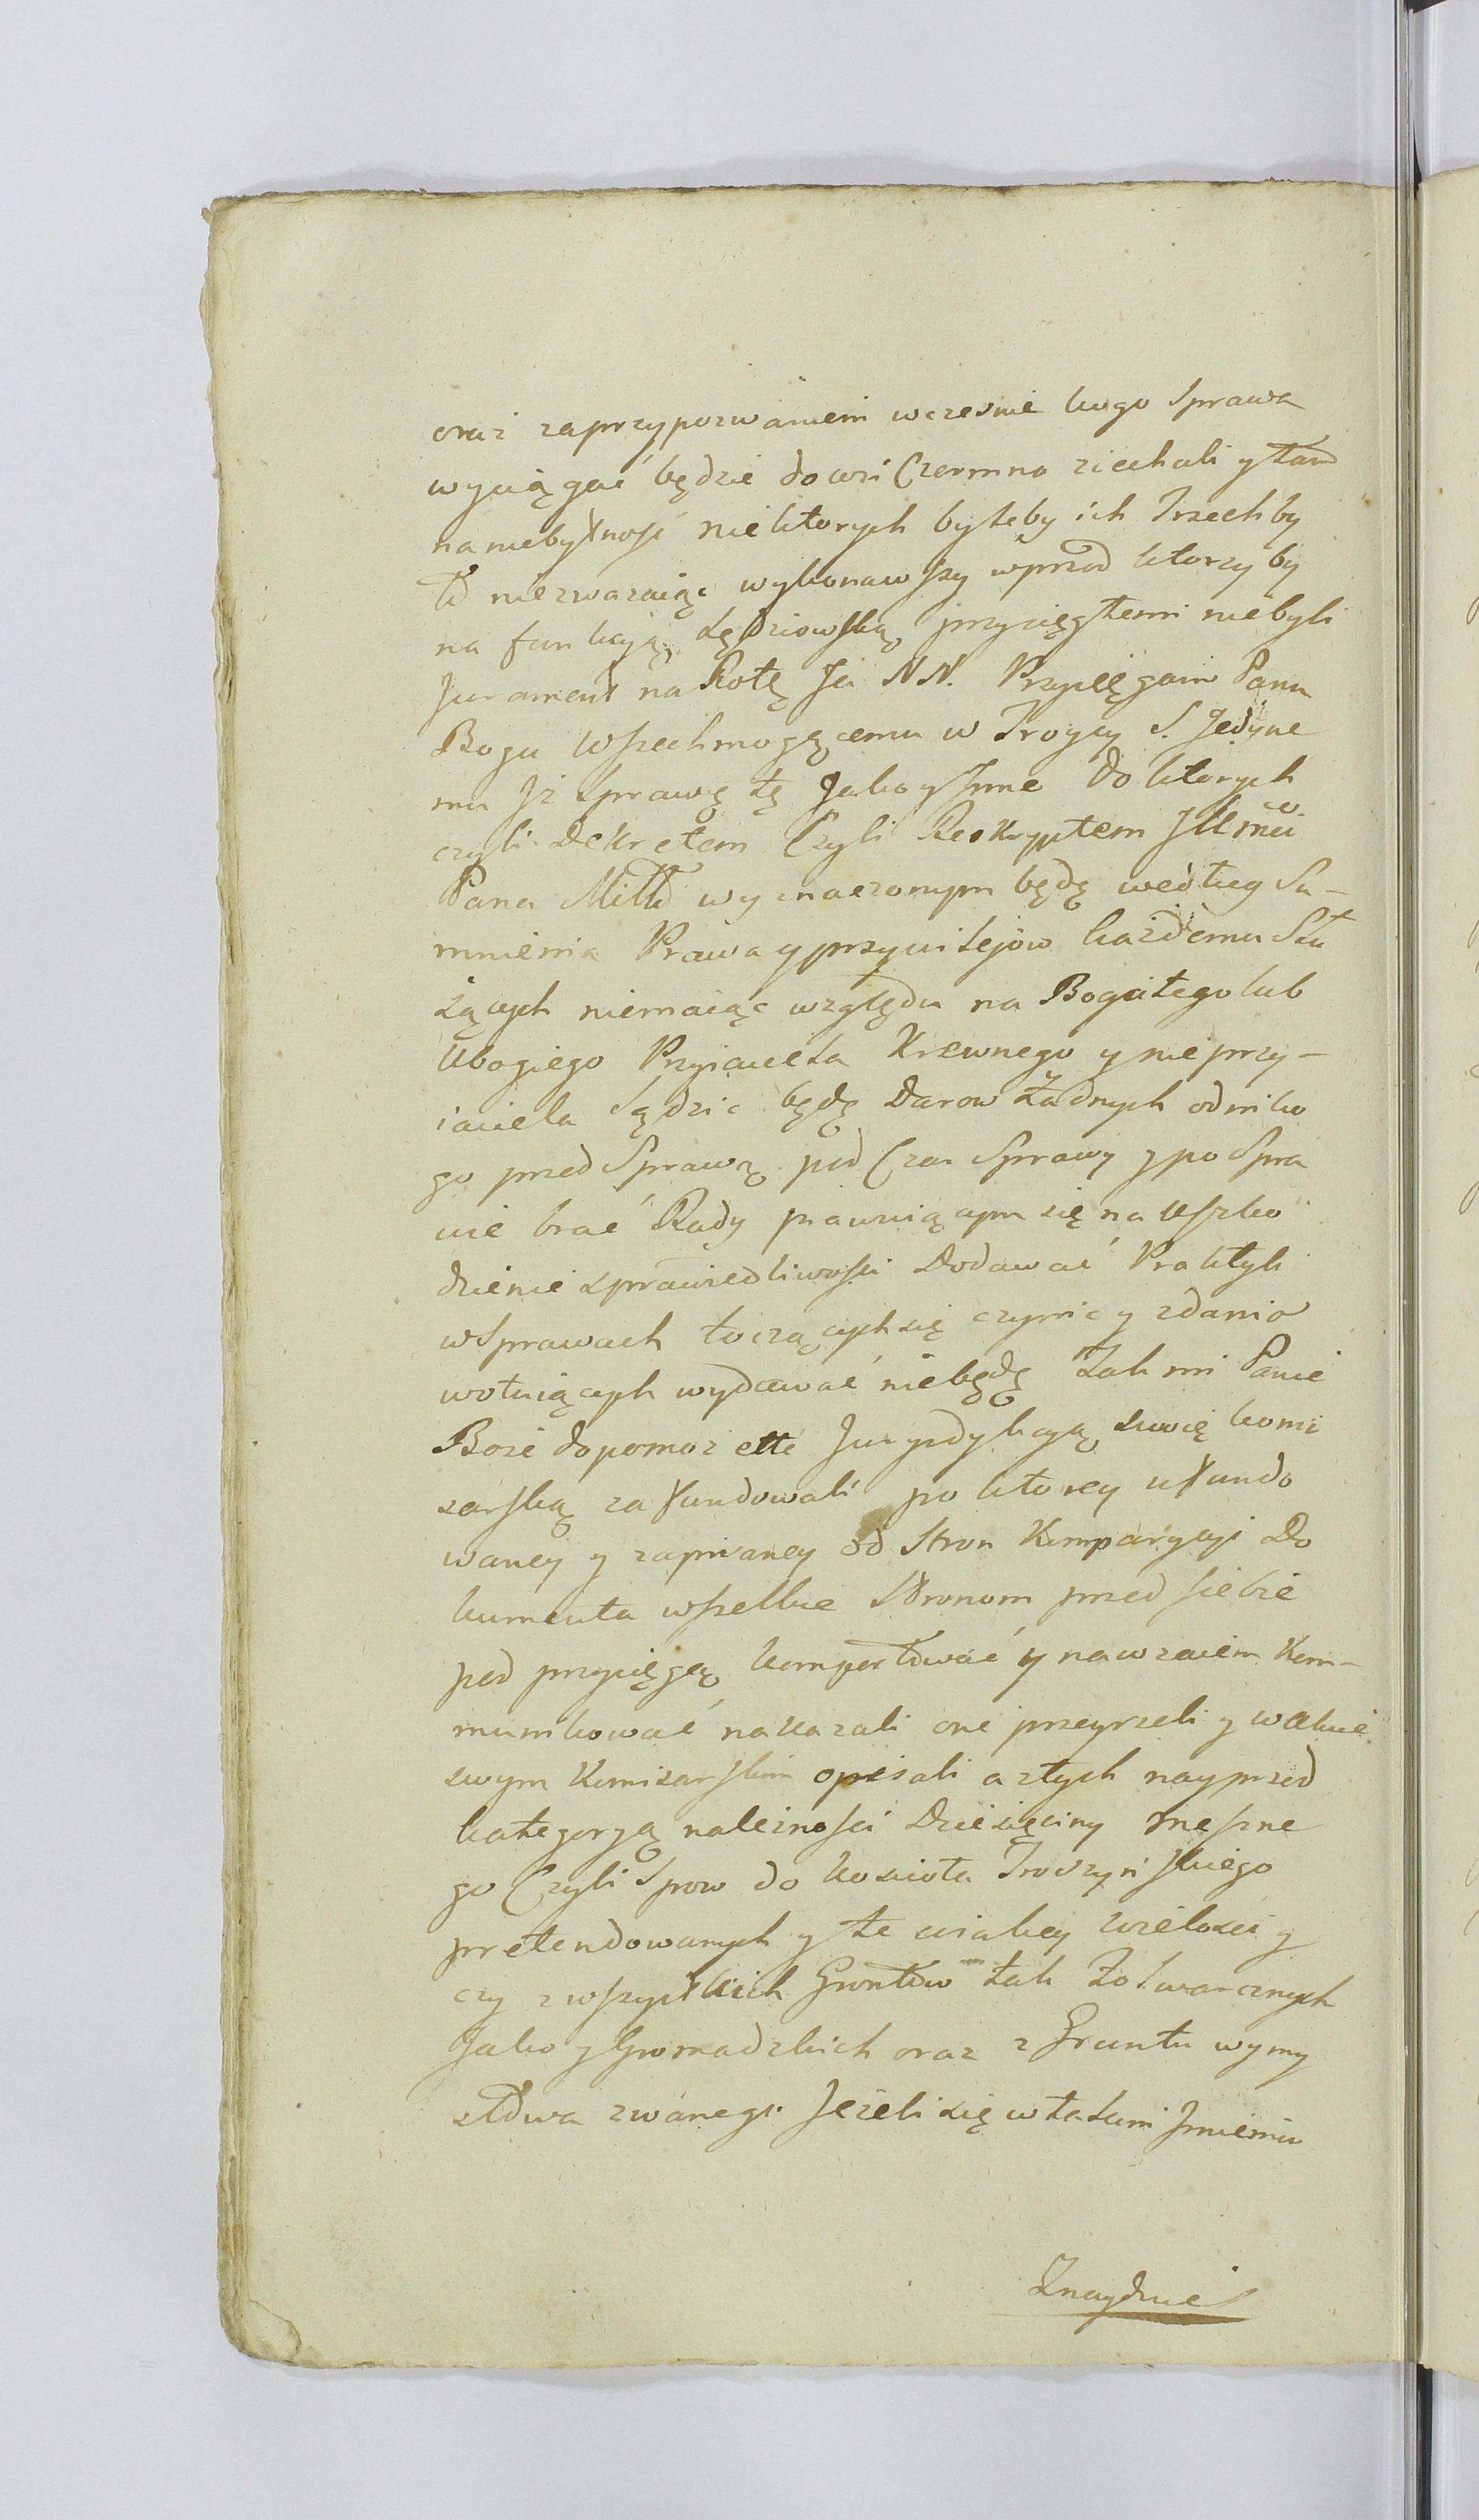 oraz zaprzypozwaniem wczesnie kogo Sprawa
wyciągać będzie do wsi Czermna ziechali y tam
na niebytność niektorych byleby ich Trzech by
ło niezwazaiąc wykonawszy wprzod ktorzy by
na funkcyą Sędziowską przysięgłemi niebyli
Jurament na Rotę Ja NN. Przysięgam Panu
Bogu Wszechmogącemu w Troycy S. Jedyne
mu Iż Sprawę tę Jako y Inne do ktorych
czyli Dekretem Czyli Reskryptem JWmći
Pana Mtto wyznaczonym będę według Su-
mnienia Prawa y przywilejow każdemu Słu
żących niemaiąc względu na Bogatego lub
Ubogiego Przyiaciela Krewnego y nieprzy-
iaciela Sądzic będę Darow Żadnych od niko
go przed Sprawą pod Czas Sprawy y po Spra
wie brać Rady prawuiącym się na Uszko
dzenie sprawiedliwości Dodawać Praktyk
w Sprawach toczących się czynic y zdania
wotuiących wydawać niebędę Tak mi Panie
Boże dopomoz ettc Juryzdykcyą swoię komi
sarską zafundowali po ktorey ufundo
waney y zapisaney od Stron Komparycyi Do
kumenta wszelkie Stronom przed siebie
pod przysięgą komportować y nawzaiem Kom-
munikować nakazali one przeyrzeli y w akcie
swym Komisarskim opisali a z tych nayprzod
kategoryą należności Dziesięciny Meszne
go Czyli Spow do kościoła Troszyńskiego
pretendowanych y te wiakiey wielości y
czy z wszystkich Grontow tak Folwarcznych
Jako y Gromadzkich oraz z Gruntu wymy
słowa zwanego Jeżeli się w takim Jmieniu
Znayduie